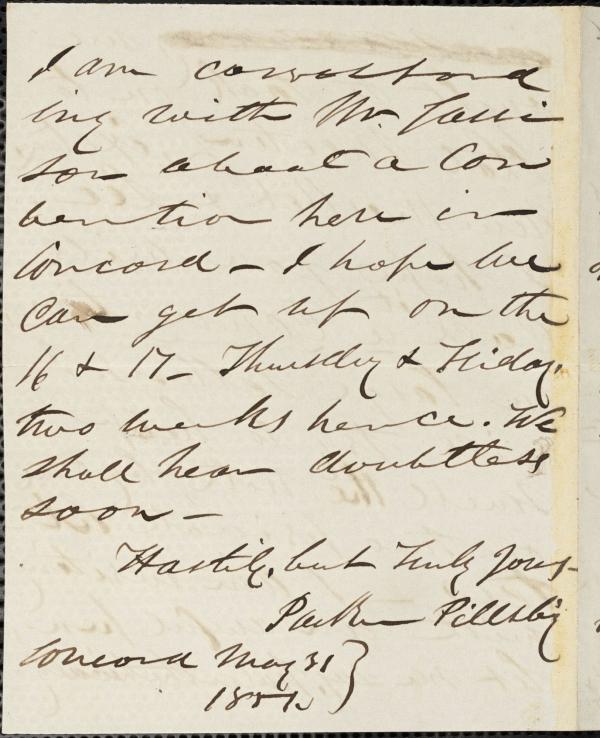 I am correspond
ing with Mr. Garri
son about a Con
vention here in
Concord – I hope we
can get up on the
16 & 17 – Thursday & Friday,
two weeks hence. We
shall hear doubtless
soon –
Hastily, but truly yours
Parker Pillsbury
Concord May 31